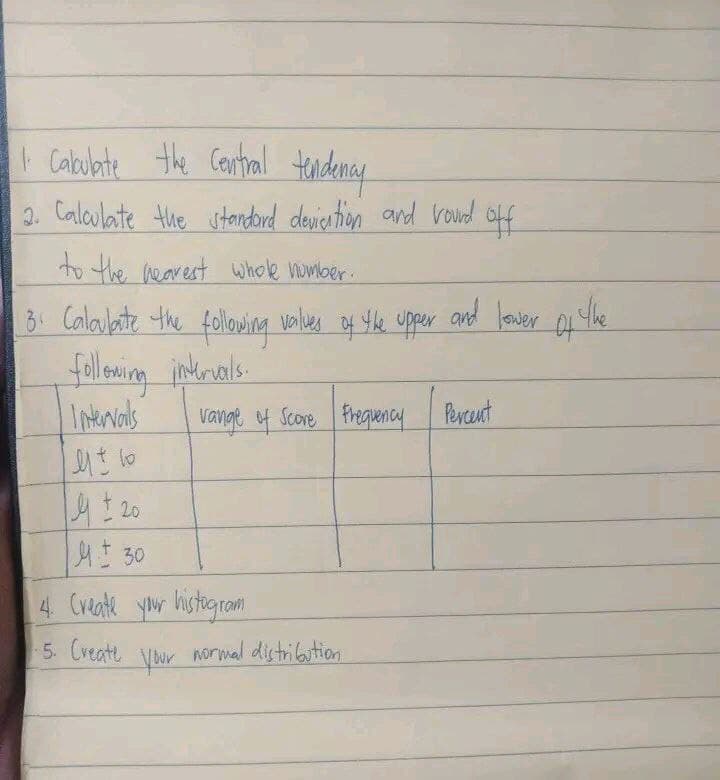 1. Calculate the Central tendency
2. Calculate the standard deviation and round off
to the nearest whole number.
3. Calculate the following values of the upper and lower of the
following intervals.
Intervals range of Score Frequency Percent
μ ± 10
μ ± 20
μ ± 30
4. Create your histogram
5. Create your normal distribution